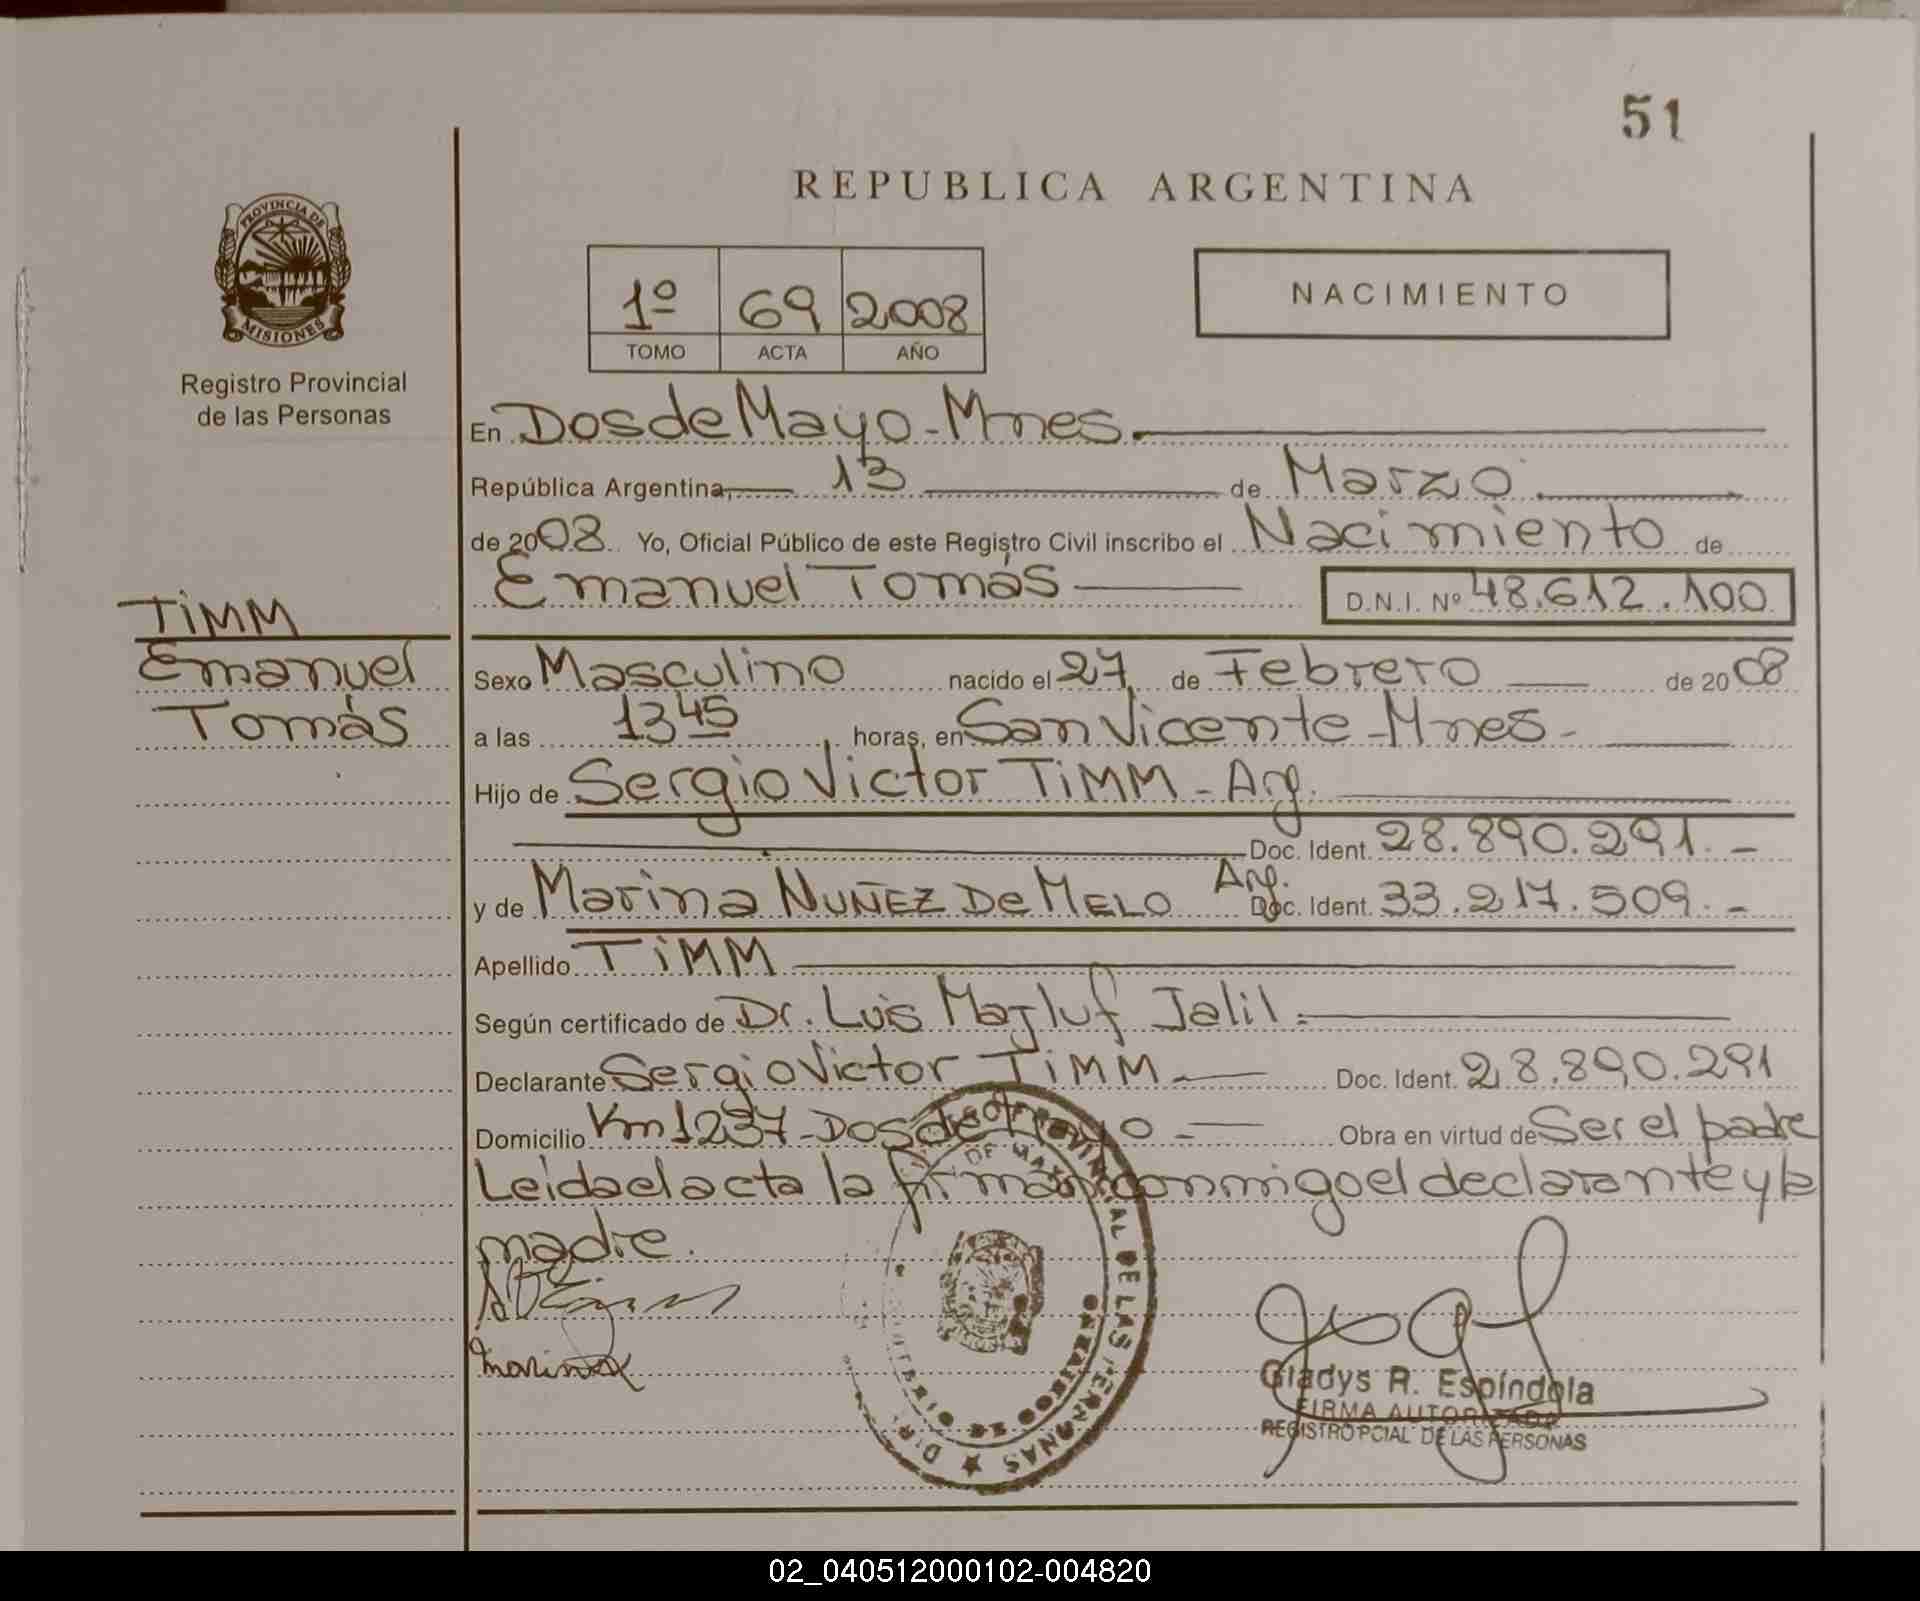 51
REPUBLICA ARGENTINA
PROVINCIA DE
MISIONES
Registro Provincial
de las Personas
1º 69 2008
TOMO ACTA AÑO
NACIMIENTO
En Dos de Mayo - Mnes.
República Argentina, 13 de Marzo
de 2008 Yo, Oficial Público de este Registro Civil inscribo el Nacimiento de
Emanuel Tomás D.N.I. Nº 48.612.100
TIMM
Emanuel
Tomás
Sexo Masculino nacido el 27 de Febrero de 2008
a las 13 45 horas, en San Vicente - Mnes -
Hijo de Sergio Victor TIMM - Arg.
Doc. Ident. 28.890.291. -
y de Marina NUÑEZ De MELO Arg. Doc. Ident. 33.217.509. -
Apellido TIMM
Según certificado de Dr. Luis Majluf Jalil.
Declarante Sergio Victor TIMM Doc. Ident. 28.890.291
Domicilio Km 1237 - Dos de Mayo - Obra en virtud de Ser el padre
Leida el acta la firman conmigo el declarante y la
madre.
Marina
DE LAS PERSONAS
Gladys R. Espíndola
FIRMA AUTORIZADA
REGISTRO PCIAL DE LAS PERSONAS
02_040512000102-004820